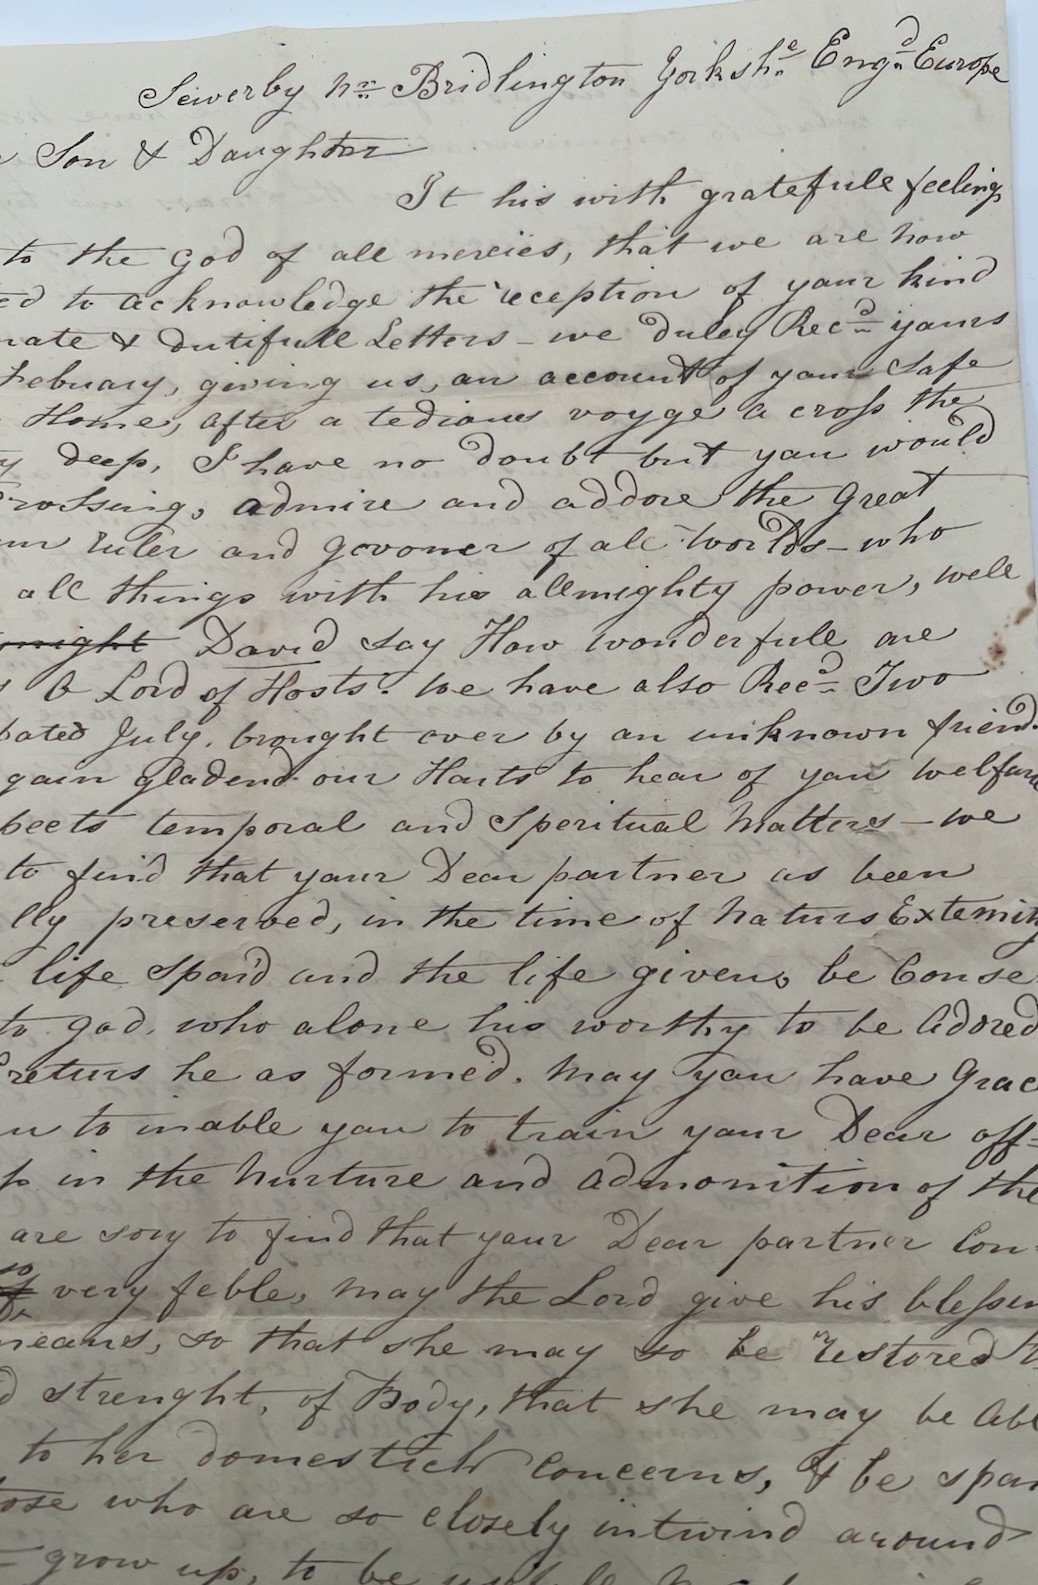 Sewerby nr Bridlington Yorkshe Engd Europe
Son & Daughter
It his with gratefull feelings
to the God of all mercies, that we are now
ed to acknowledge the reception of your kind
nate & dutifull Letters - we duley Recd yours
Febuary, giving us, an account of your safe
Home, after a tedious voyge a cross the
deep, I have no doubt but you would
rossing, admire and addore the great
ruler and govoner of all Worlds - who
all things with his allmighty power, well
might David say How wonderfull are
O Lord of Hosts. We have also Recd Two
dated July, brought over by an unknown friend
gain gladend our Harts to hear of you welfare
pects temporal and Speritual Matters - we
to find that your Dear partner as been
lly preserved, in the time of Naturs Extemity
life spard and the life given, be Conse
to God, who alone his worthy to be Adored
returs he as formed. May you have Grac
to inable you to train your Dear off=
in the Nurture and Admonition of the
are sory to find that your Dear partner Con
so very feble, may the Lord give his blessin
means, so that she may so be restored t
d strenght, of Body, that she may be Abl
to her domestick Concerns, & be spar
ose who are so closely intwind around
grow up, to be